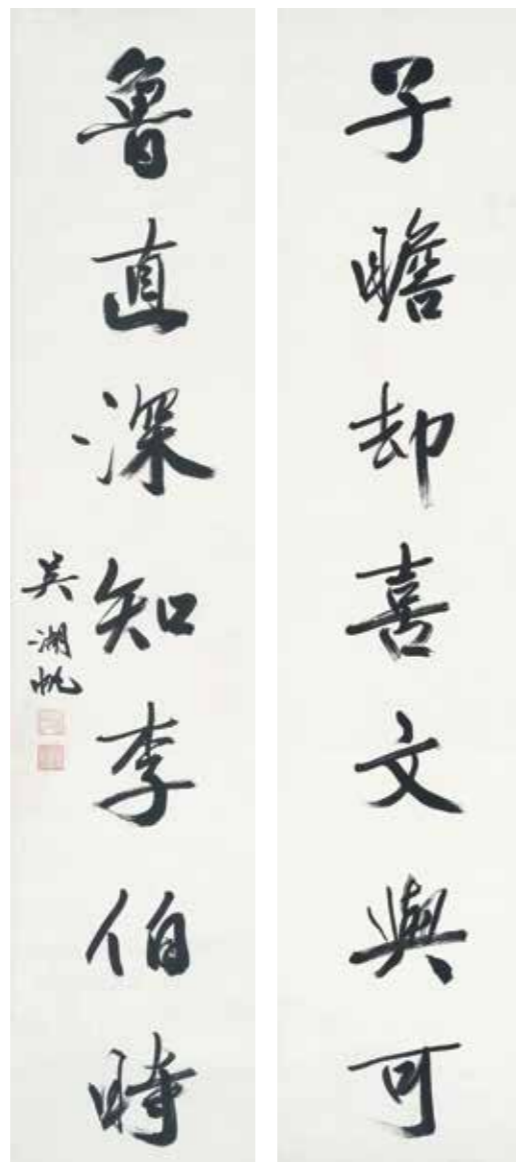 子瞻却喜文與可
魯直深知李伯時
吳湖帆